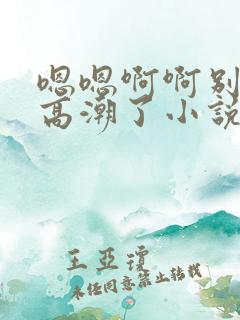 嗯嗯啊啊别
高潮了小说
王亚琼
未经同意禁止转载